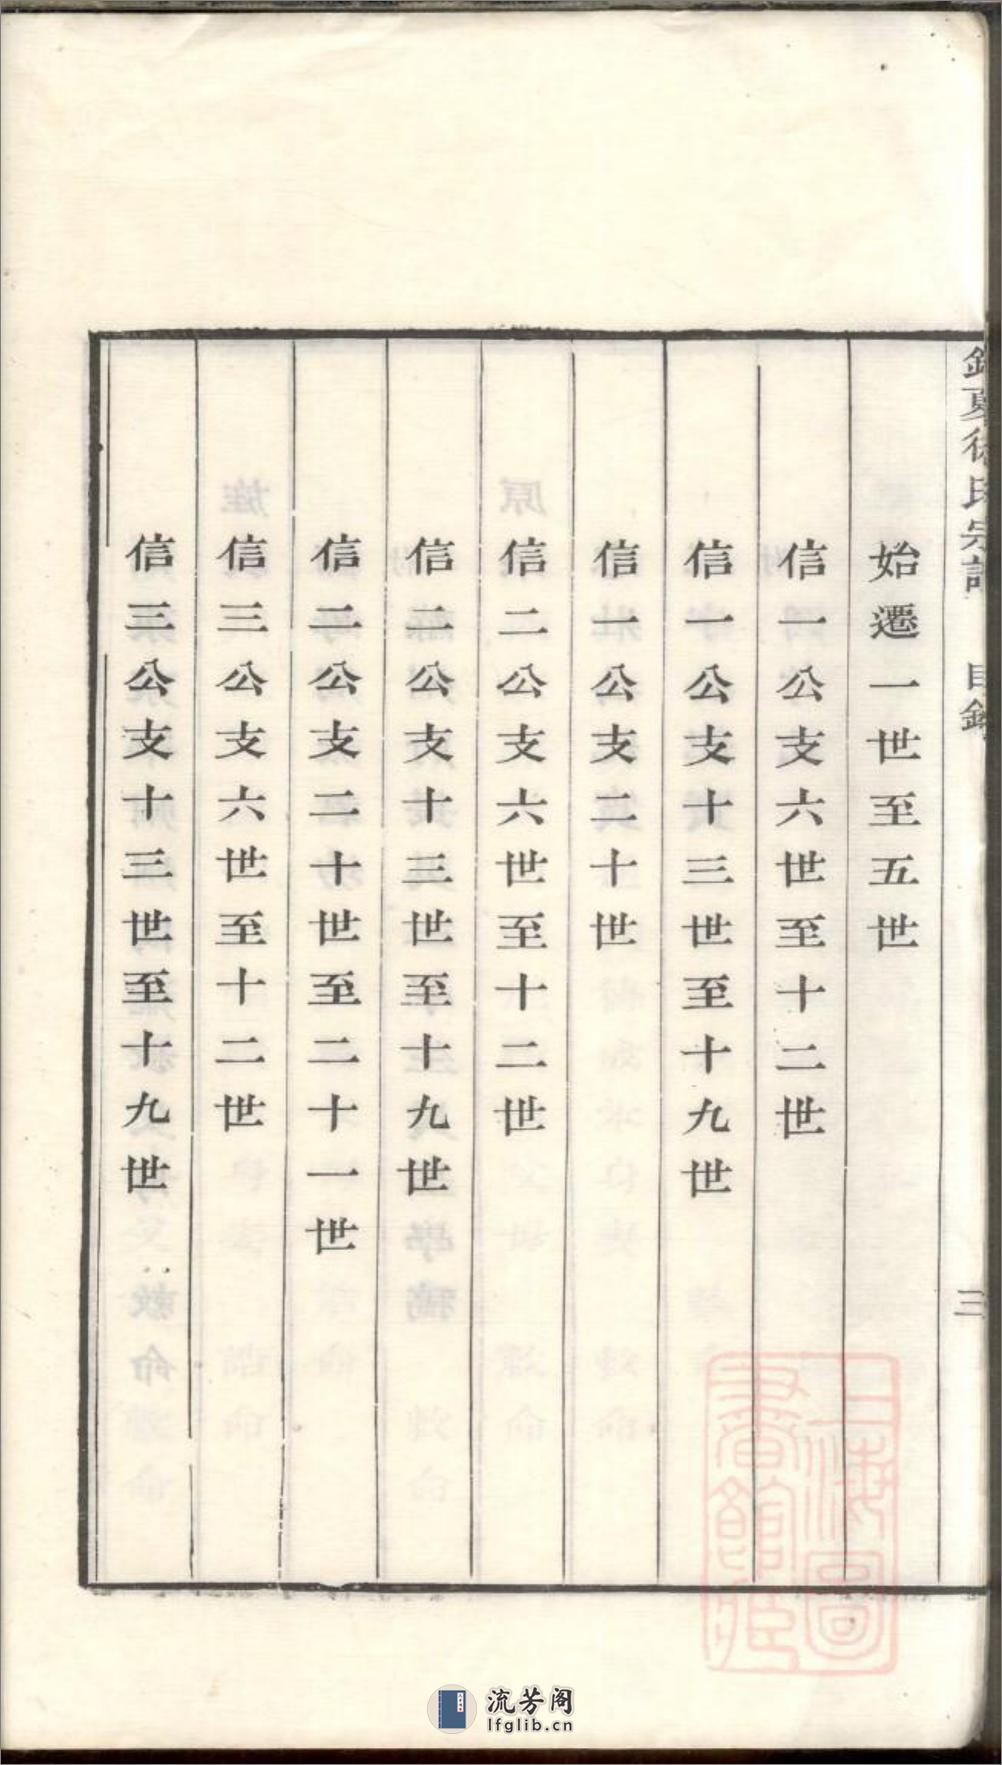 夏 氏宗譜 目錄 三
始遷一世至五世
信一公支六世至十二世
信一公支十三世至十九世
信一公支二十世
信二公支六世至十二世
信二公支十三世至十九世
信二公支二十世至二十一世
信三公支六世至十二世
信三公支十三世至十九世
上海圖
書館藏
流芳阁
lfglib.cn